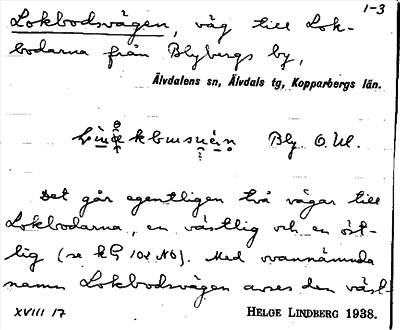 1-3
Lokbodsvägen, väg till Lok-
bodarna från Blybergs by,
Älvdalens sn, Älvdals tg, Kopparbergs län.
Bly. O. Ul.
Det går egentligen två vägar till
Lokbodarna, en västlig och en öst-
lig (se kG 102 No). Med ovannämnda
namn Lokbodsvägen avses den väst-
XVIII 17
HELGE LINDBERG 1938.